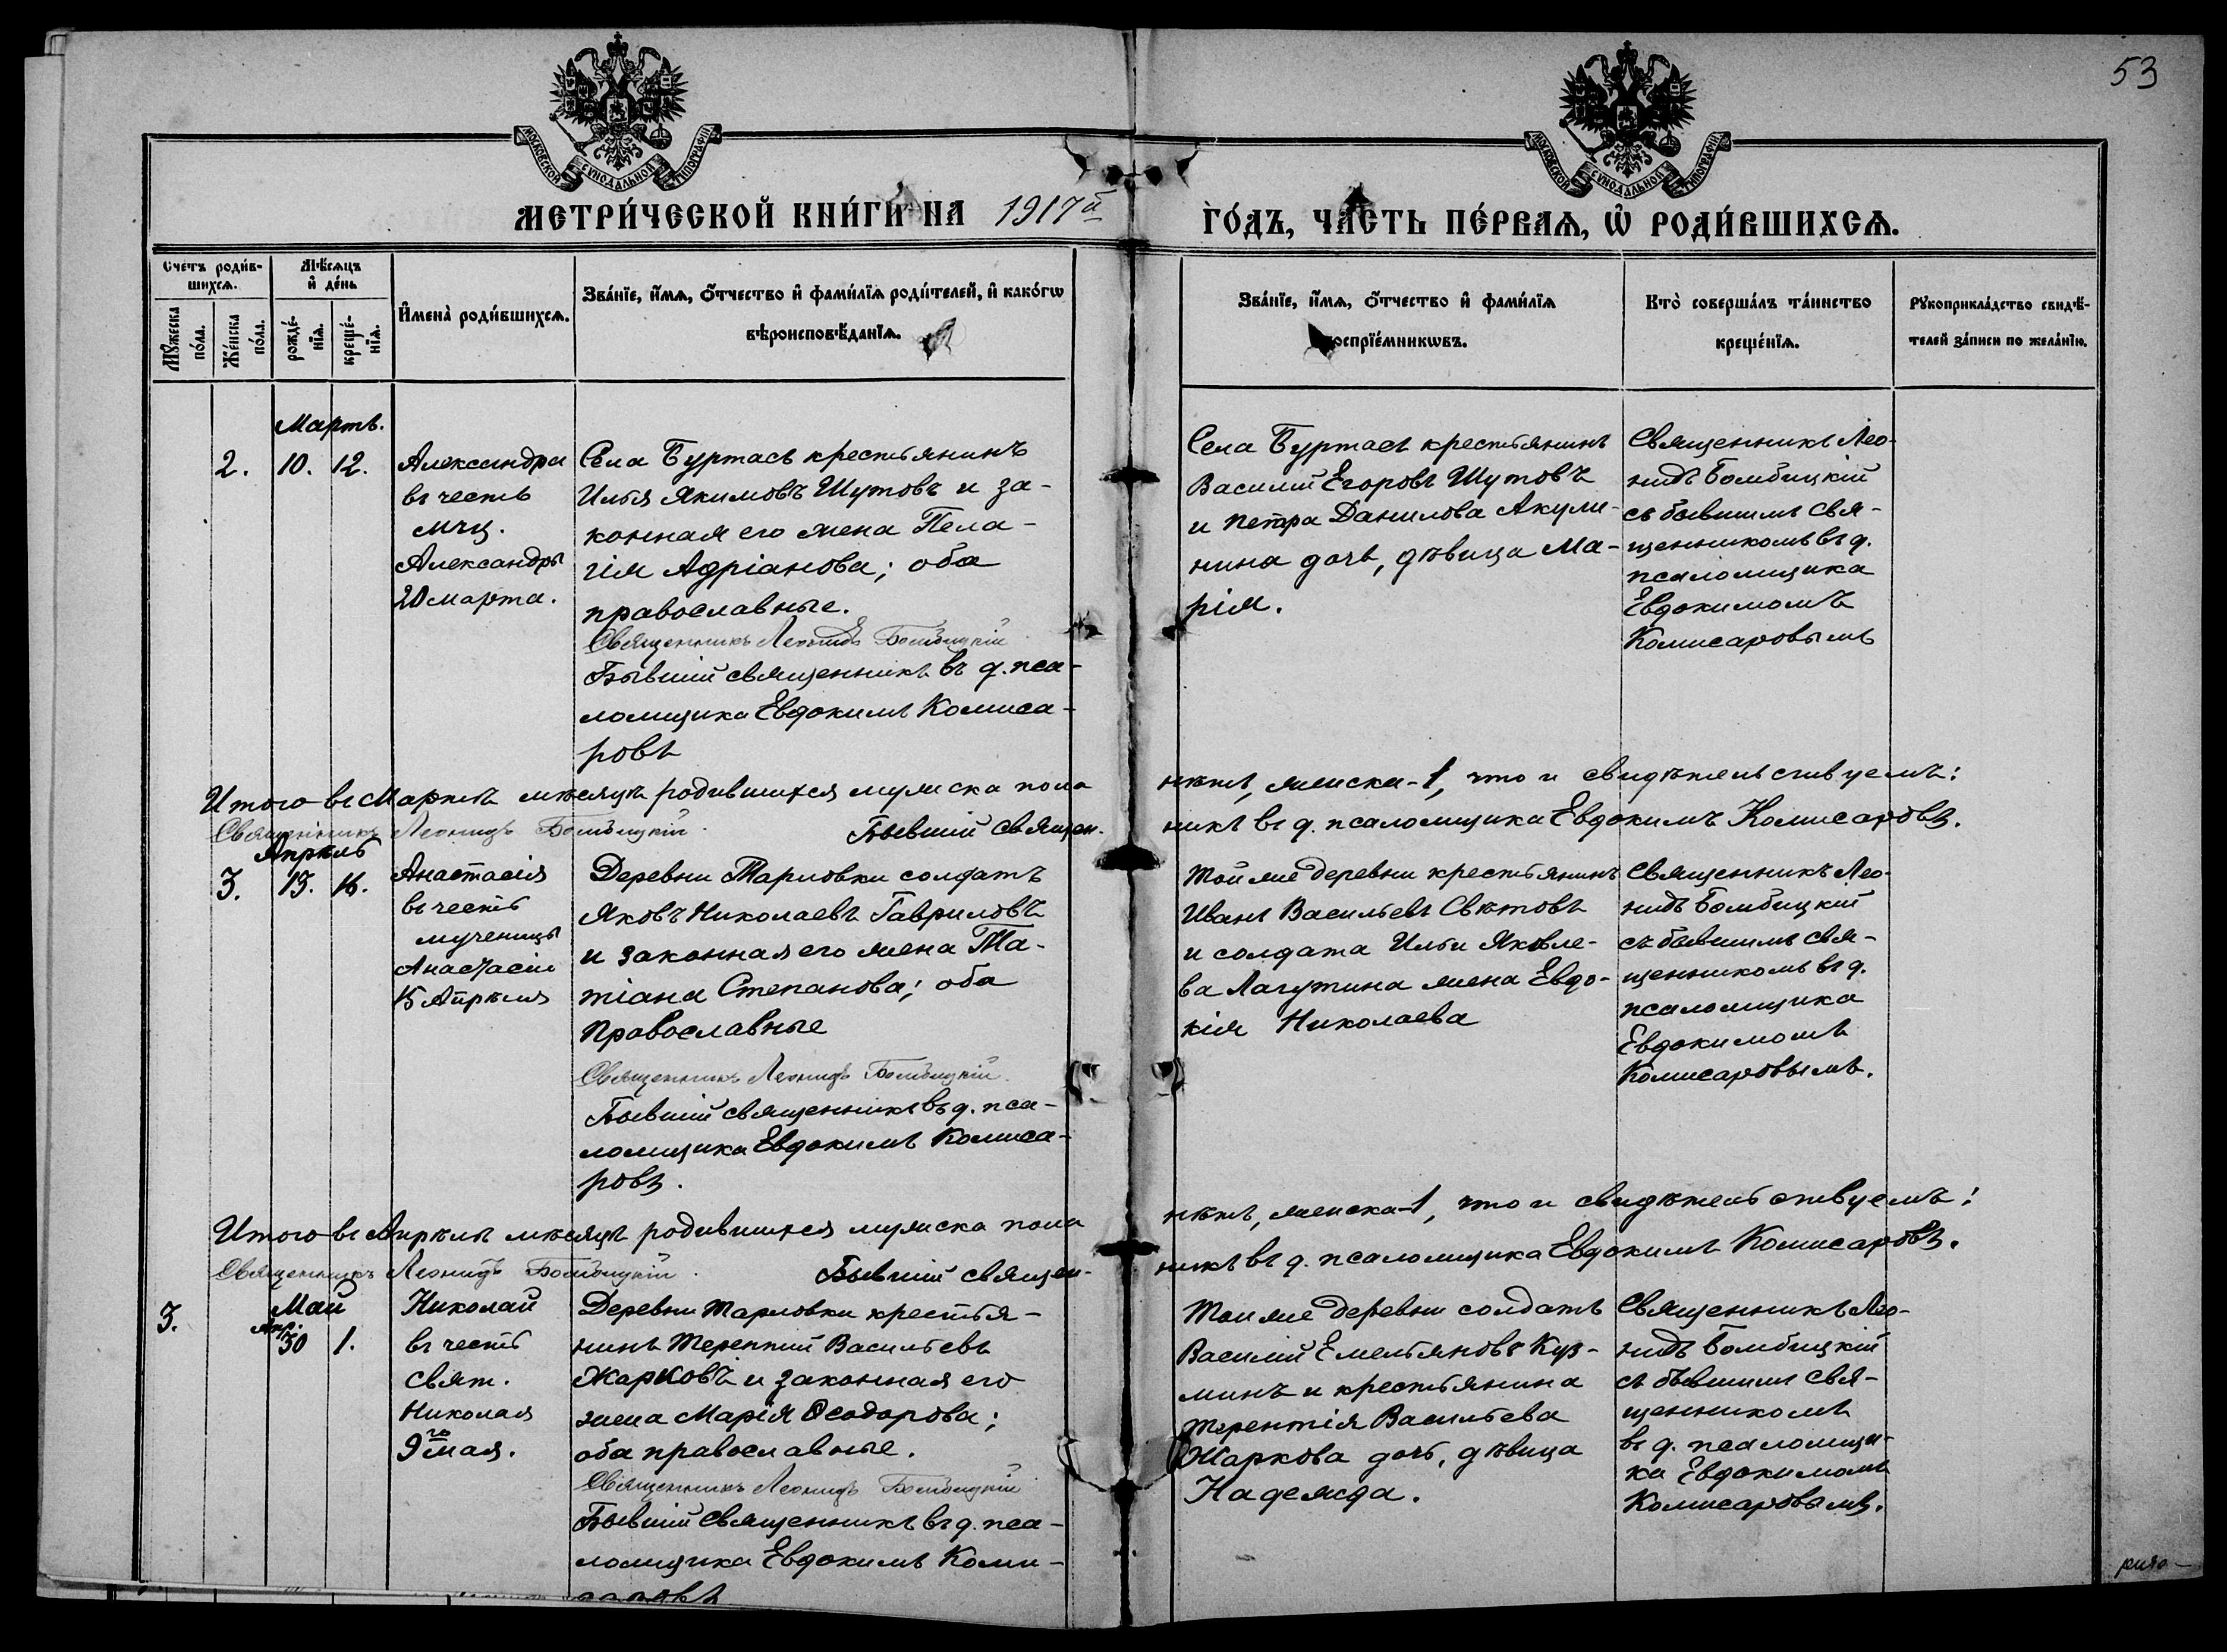 53
МОСКОВСКОЙ СѴНОДАЛЬНОЙ ТИПОГРАФІИ
МОСКОВСКОЙ СѴНОДАЛЬНОЙ ТИПОГРАФІИ
МЕТРИ́ЧЕСКОЙ КНИ́ГИ НА 1917й ГО́ДЪ, ЧА́СТЬ ПЕ́РВАѦ, Ѡ҆ РОДИ́ВШИХСѦ.
Счетъ роди́в-
шихсѧ.
Мꙋ́жеска
по́ла.
Же́нска
по́ла.
Мѣ́сѧцъ
и҆ де́нь
рожде́-
нїѧ.
креще́-
нїѧ.
И҆мена̀ роди́вшихсѧ.
Зва́нїе, и҆́мѧ, ѻ҆́тчество и҆ фами́лїѧ роди́телей, и҆ како́гѡ
вѣроисповѣ́данїѧ.
Зва́нїе, и҆́мѧ, ѻ҆́тчество и҆ фами́лїѧ
воспрїе́мникѡвъ.
Кто̀ соверша́лъ та́инство
креще́нїѧ.
Рꙋкоприкла́дство свидѣ́-
телей за́писи по жела́нїю.
Мартъ.
2. 10. 12.
Александра
въ честь
мчц.
Александры
20 марта.
Села Буртасъ крестьянинъ
Илья Якимовъ Шутовъ и за-
конная его жена Пела-
гія Адріанова; оба
православные.
Священникъ Леонидъ Бомбицкій
Бывшій священникъ въ д. пса-
ломщика Евдокимъ Комиса-
ровъ
Села Буртасъ крестьянинъ
Василій Егоровъ Шутовъ
и Петра Данилова Акули-
нина дочь, дѣвица Ма-
рія.
Священникъ Лео-
нидъ Бомбицкій
съ бывшимъ свя-
щенникомъ въ д.
псаломщика
Евдокимомъ
Комисаровымъ
Итого въ Мартѣ мѣсяцѣ родившихся мужска пола нѣтъ, женска-1, что и свидѣтельствуемъ:
Священникъ Леонидъ Бомбицкій. Бывшій священ. никъ въ д. псаломщика Евдокимъ Комисаровъ.
Апрѣль
3. 15. 16.
Анастасія
въ честь
мученицы
Анастасіи
15 Апрѣля
Деревни Тарловки солдатъ
Яковъ Николаевъ Гавриловъ
и законная его жена Та-
тіана Степанова; оба
православные
Священникъ Леонидъ Бомбицкій.
Бывшій священникъ въ д. пса-
ломщика Евдокимъ Комиса-
ровъ.
Той же деревни крестьянинъ
Иванъ Васильевъ Свѣтовъ
и солдата Ильи Яковле-
ва Лагутина жена Евдо-
кія Николаева
Священникъ Лео-
нидъ Бомбицкій
съ бывшимъ свя-
щенникомъ въ д.
псаломщика
Евдокимомъ
Комисаровымъ.
Итого въ Апрѣлѣ мѣсяцѣ родившихся мужска пола нѣтъ, женска-1, что и свидѣтельствуемъ:
Священникъ Леонидъ Бомбицкій. Бывшій священ- никъ въ д. псаломщика Евдокимъ Комисаровъ.
Май
Апр.
3. 30 1.
Николай
въ честь
свят.
Николая
9го мая.
Деревни Тарловки крестья-
нинъ Терентій Васильевъ
Жарковъ и законная его
жена Марія Ѳеодорова;
оба православные.
Священникъ Леонидъ Бомбицкій
Бывшій священникъ въ д. пса-
ломщика Евдокимъ Коми-
саровъ
Той же деревни солдатъ
Василій Емельяновъ Куз-
минъ и крестьянина
Терентія Васильева
Жаркова дочь, дѣвица
Надежда.
Священникъ Лео-
нидъ Бомбицкій
съ бывшимъ свя-
щенникомъ
въ д. псаломщи-
ка Евдокимомъ
Комисаровымъ.